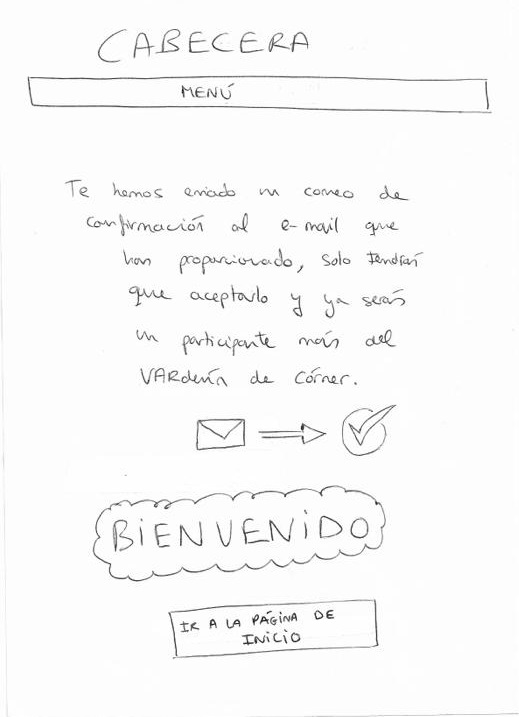 CABECERA
MENÚ
Te hemos enviado un correo de
confirmación al e-mail que
han proporcionado, solo tendrás
que aceptarlo y ya serás
un participante más del
VARdería de córner.
BIENVENIDO
IR A LA PÁGINA DE
INICIO